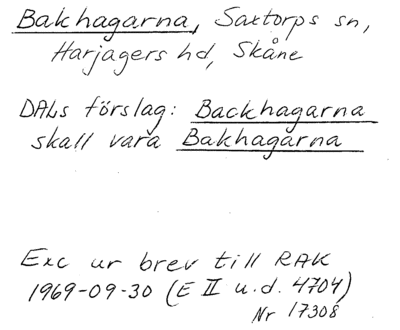 Bakhagarna, Saxtorps sn,
Harjagers hd, Skåne
DALs förslag: Backhagarna
skall vara Bakhagarna
Exc ur brev till RAK
1969-09-30 (E II u.d. 4704)
Nr 17308